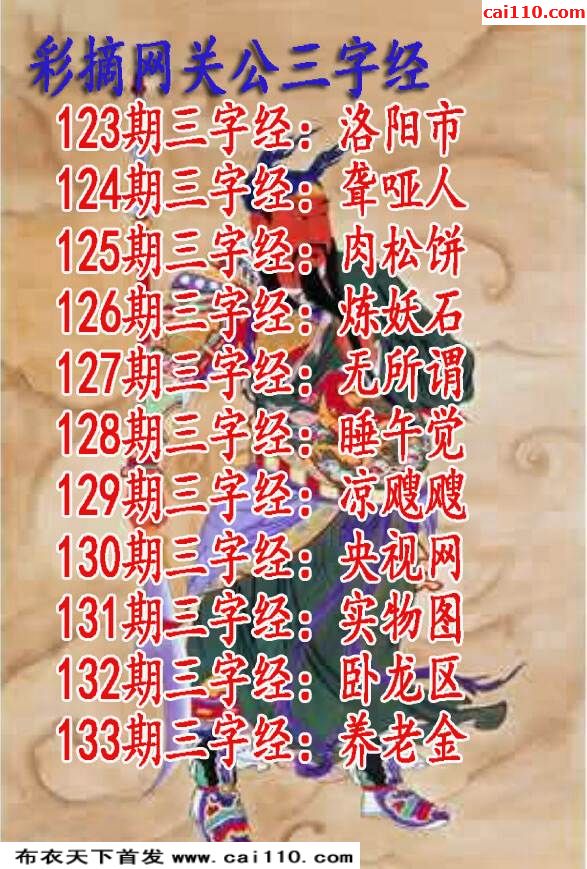 cai110.com
彩摘网关公三字经
123期三字经：洛阳市
124期三字经：聋哑人
125期三字经：肉松饼
126期三字经：炼妖石
127期三字经：无所谓
128期三字经：睡午觉
129期三字经：凉飕飕
130期三字经：央视网
131期三字经：实物图
132期三字经：卧龙区
133期三字经：养老金
布衣天下首发 www.cai110.com